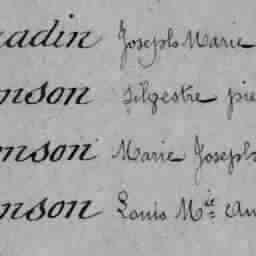 adin Joseph Marie
nson Silgestre pie
nson Marie Joseph
nson Louis Mie An